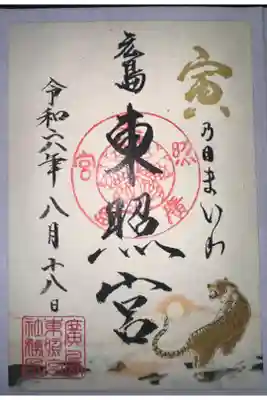 寅
乃日まいり
広島
東照宮
令和六年八月十八日
廣島
東照宮
社務所